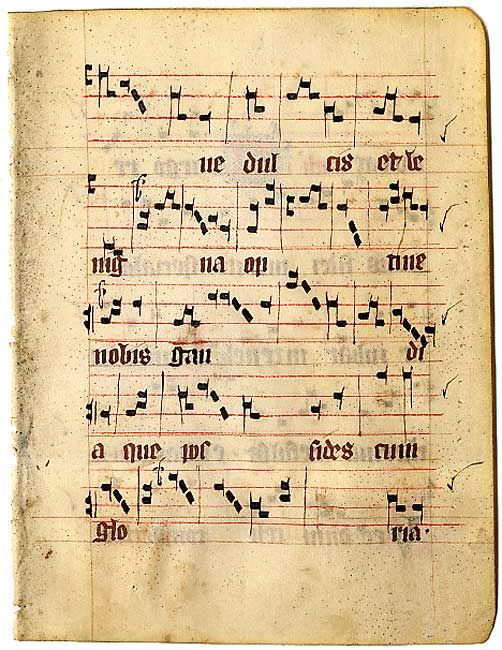 ue dul cis et be
nig na op tine
nobis gau di
a que pos sides cum
glo ria.